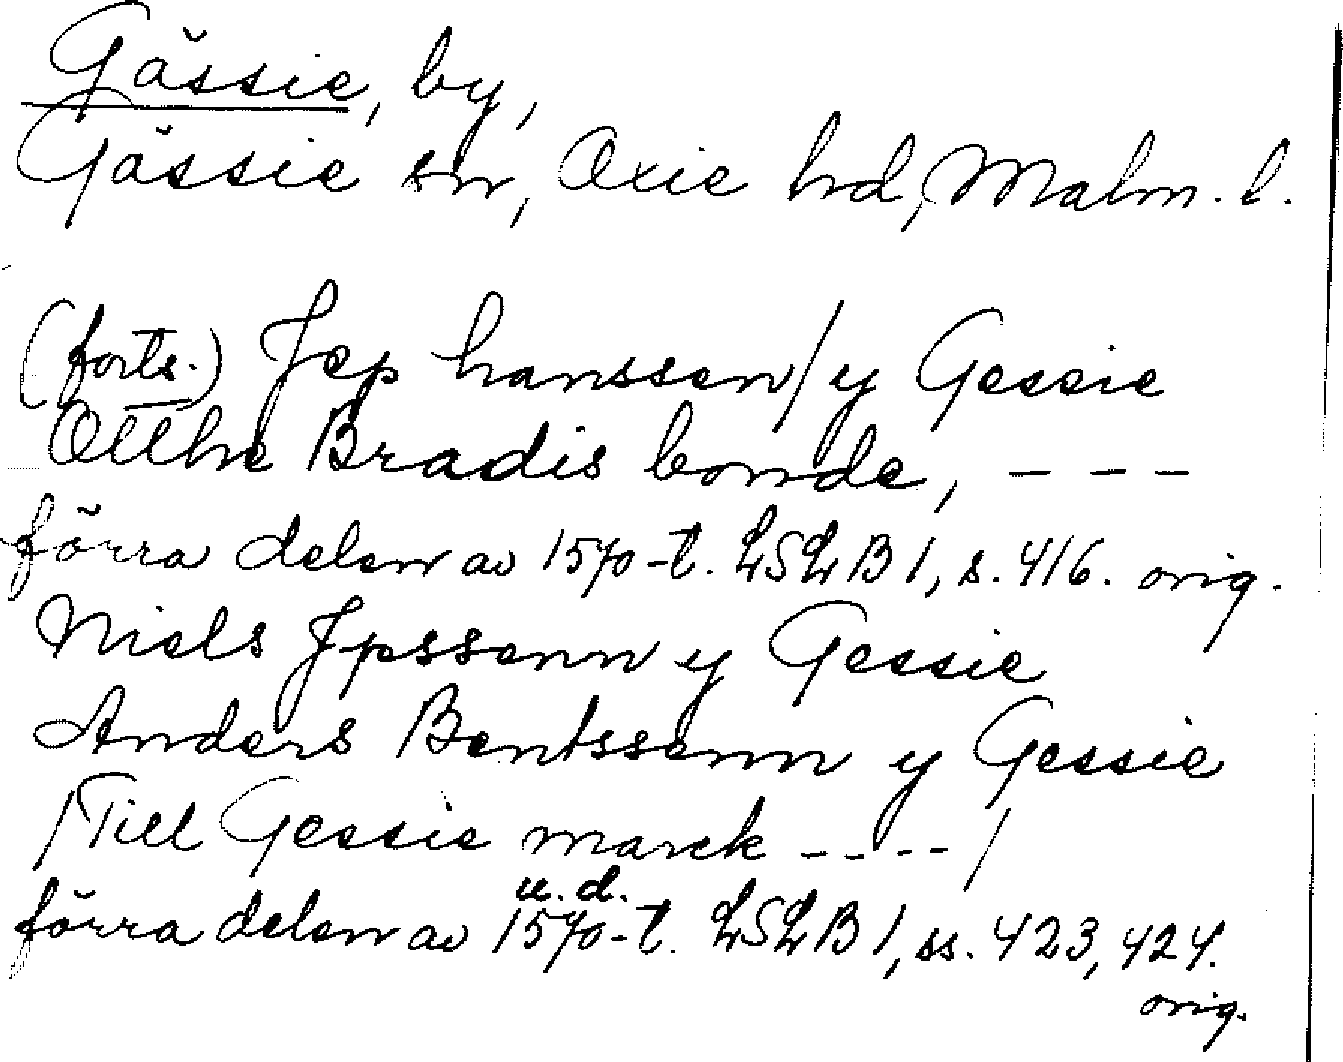 Gässie, by,
Gässie sn, Oxie hd, Malm. l.
(forts.) Jep hanssen/y Gessie
Otthe Bradis bonde, - - -
förra delen av 1570-t. LSLB 1, s. 416. orig.
Niels Jpssenn y Gessie
Anders Bentssenn y Gessie
/Till Gessie marck - - - -/
u. d.
förra delen av 1570-t. LSLB 1, ss. 423, 424.
orig.